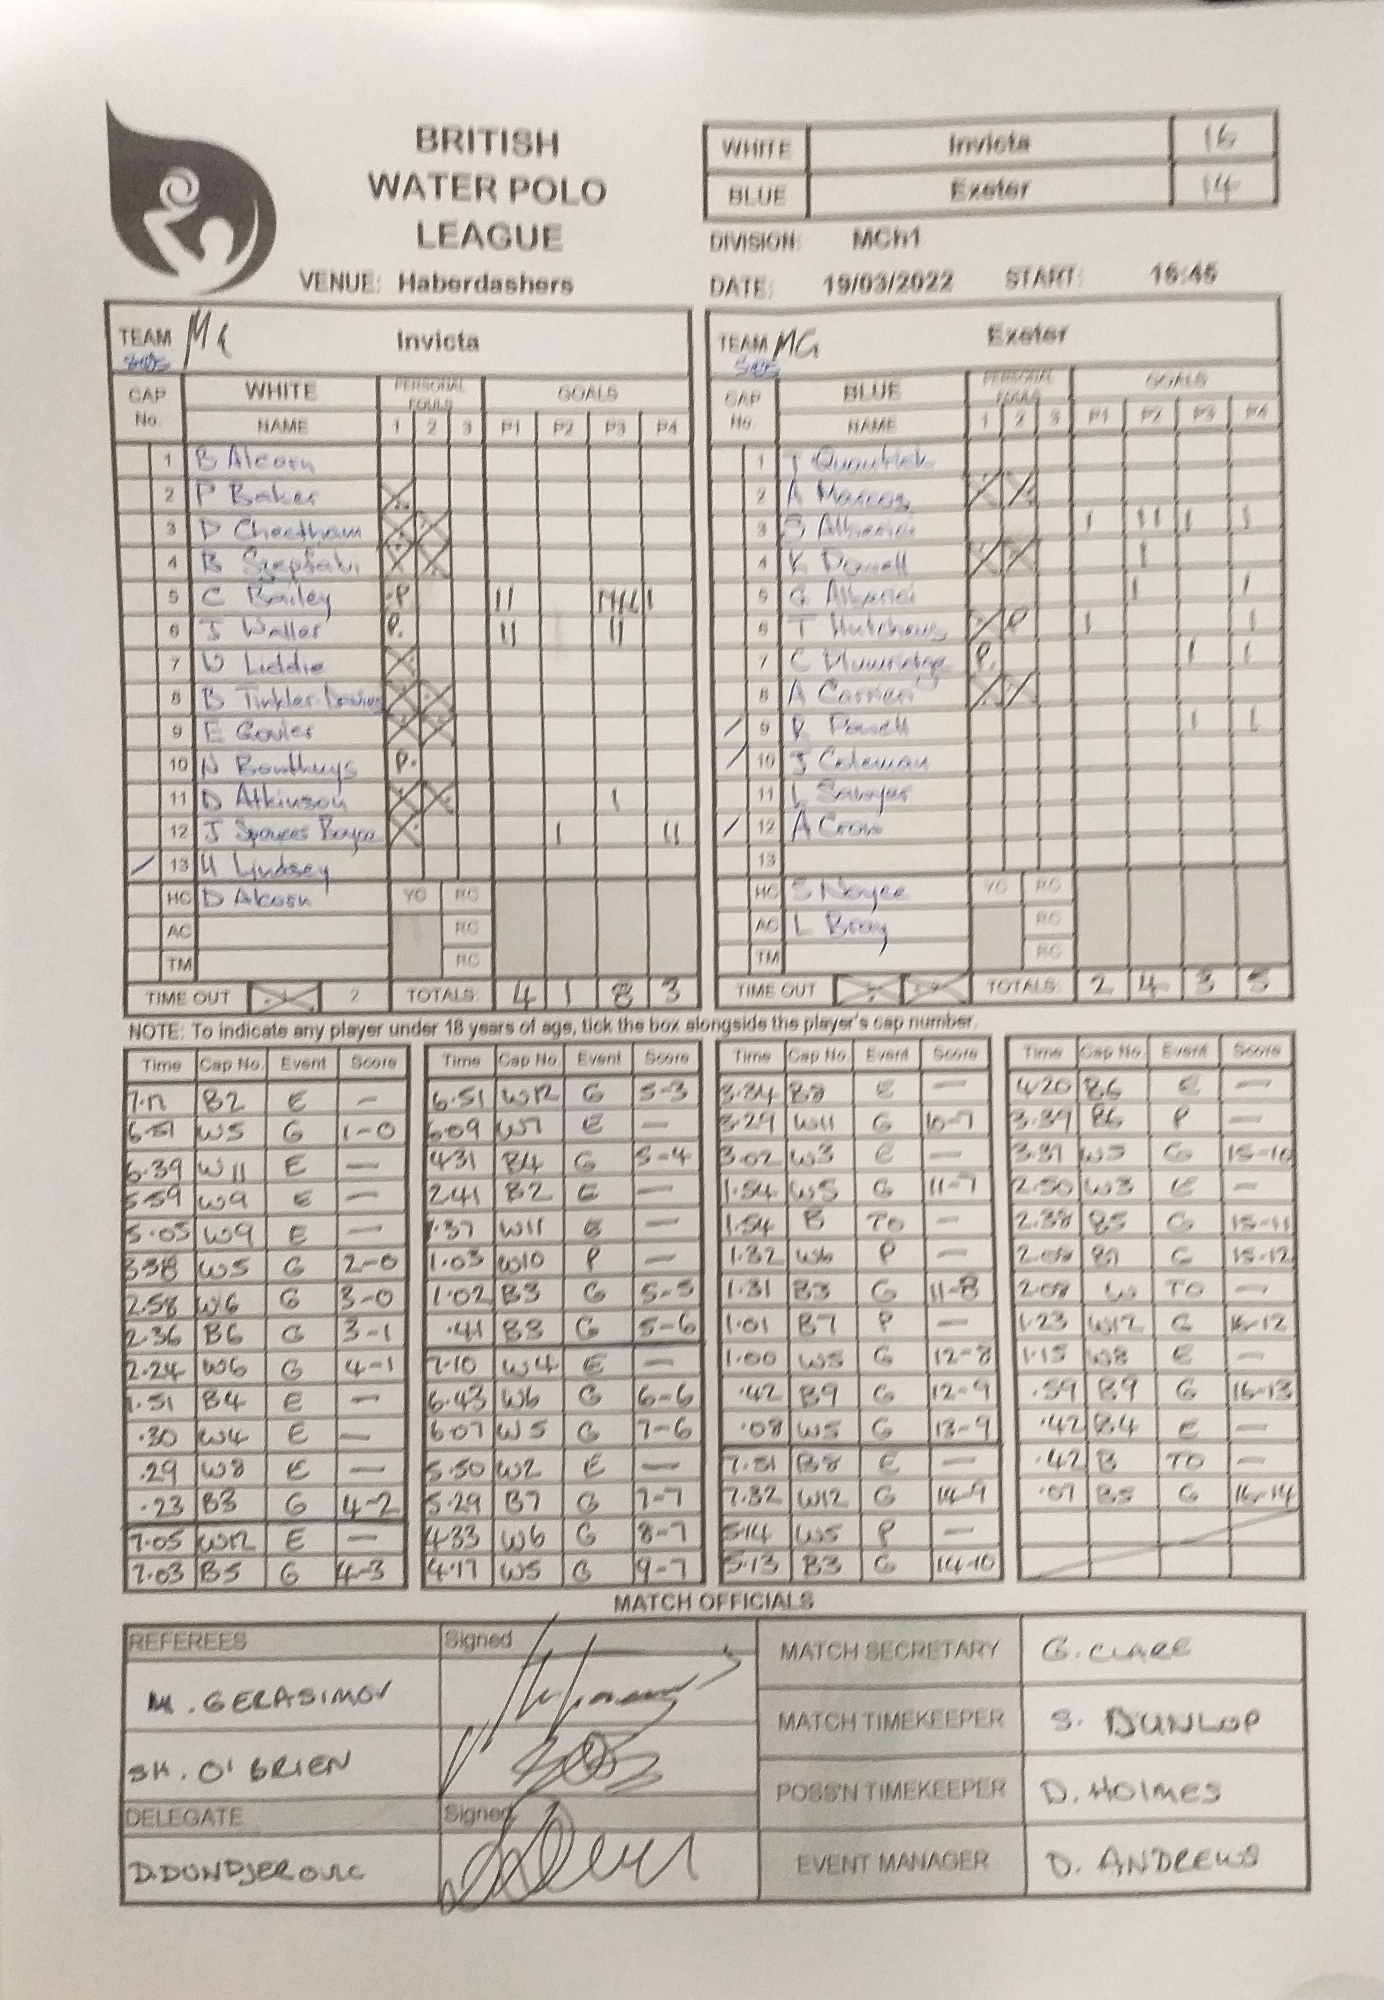 BRITISH
WATER POLO
LEAGUE
VENUE: Haberdashers
WHITE Invicta 16
BLUE Exeter 14
DIVISION: MCh1
DATE: 19/03/2022 START: 16:45
TEAM Invicta
CAP No. WHITE NAME PERSONAL FOULS 1 2 3 GOALS P1 P2 P3 P4
1 B Alcorn
2 P Baker
3 D Cheetham
4 B
5 C Bailey P
6 J Waller P.
7 W Liddle
8 B Tinkler-Davies
9 E Gowler
10 N Bonthuys P.
11 D Atkinson
12 J Spencer
13 H Lindsey
HC D Alcorn YC RC
AC RC
TM RC
TIME OUT 1 2 TOTALS: 4 1 8 3
TEAM MG Exeter
CAP No. BLUE NAME PERSONAL FOULS 1 2 3 GOALS P1 P2 P3 P4
1
2 A Marcos
3 S
4 K Powell
5 G
6 T Hutchings P
7 C P.
8 A
9 R Powell
10 J Coleman
11 L Sawyer
12 A Crow
13
HC S Noyce YC RC
AC L Bray RC
TM RC
TIME OUT TOTALS: 2 4 3 5
NOTE: To indicate any player under 18 years of age, tick the box alongside the player's cap number.
Time Cap No. Event Score
7.17 B2 E —
6.51 W5 G 1-0
6.39 W11 E —
5.59 W9 E —
5.05 W9 E —
3.38 W5 G 2-0
2.58 W6 G 3-0
2.36 B6 G 3-1
2.24 W6 G 4-1
1.51 B4 E —
.30 W4 E —
.29 W8 E —
.23 B3 G 4-2
7.05 W12 E —
7.03 B5 G 4-3
Time Cap No. Event Score
6.51 W12 G 5-3
6.09 W7 E —
4.31 B4 G 5-4
2.41 B2 E —
1.37 W11 E —
1.03 W10 P —
1.02 B3 G 5-5
.41 B3 G 5-6
7.10 W4 E —
6.43 W6 G 6-6
6.07 W5 G 7-6
5.50 W2 E —
5.29 B7 G 7-7
4.33 W6 G 8-7
4.17 W5 G 9-7
Time Cap No. Event Score
3.34 B8 E —
3.29 W11 G 10-7
3.02 W3 E —
1.54 W5 G 11-7
1.54 B TO —
1.32 W6 P —
1.31 B3 G 11-8
1.01 B7 P —
1.00 W5 G 12-8
.42 B9 G 12-9
.08 W5 G 13-9
7.51 B8 E —
7.32 W12 G 14-9
5.14 W5 P —
5.13 B3 G 14-10
Time Cap No. Event Score
4.20 B6 E —
3.39 B6 P —
3.37 W5 G 15-10
2.50 W3 E —
2.38 B5 G 15-11
2.08 B7 G 15-12
2.08 W TO —
1.23 W12 G 16-12
1.15 W8 E —
.59 B9 G 16-13
.42 B4 E —
.42 B TO —
.07 B5 G 16-14
MATCH OFFICIALS
REFEREES Signed
M. GERASIMOV
SH. O'BRIEN
DELEGATE Signed
D. DUNDJEROVIC
MATCH SECRETARY G. CLARE
MATCH TIMEKEEPER S. DUNLOP
POSS'N TIMEKEEPER D. HOLMES
EVENT MANAGER D. ANDREWS